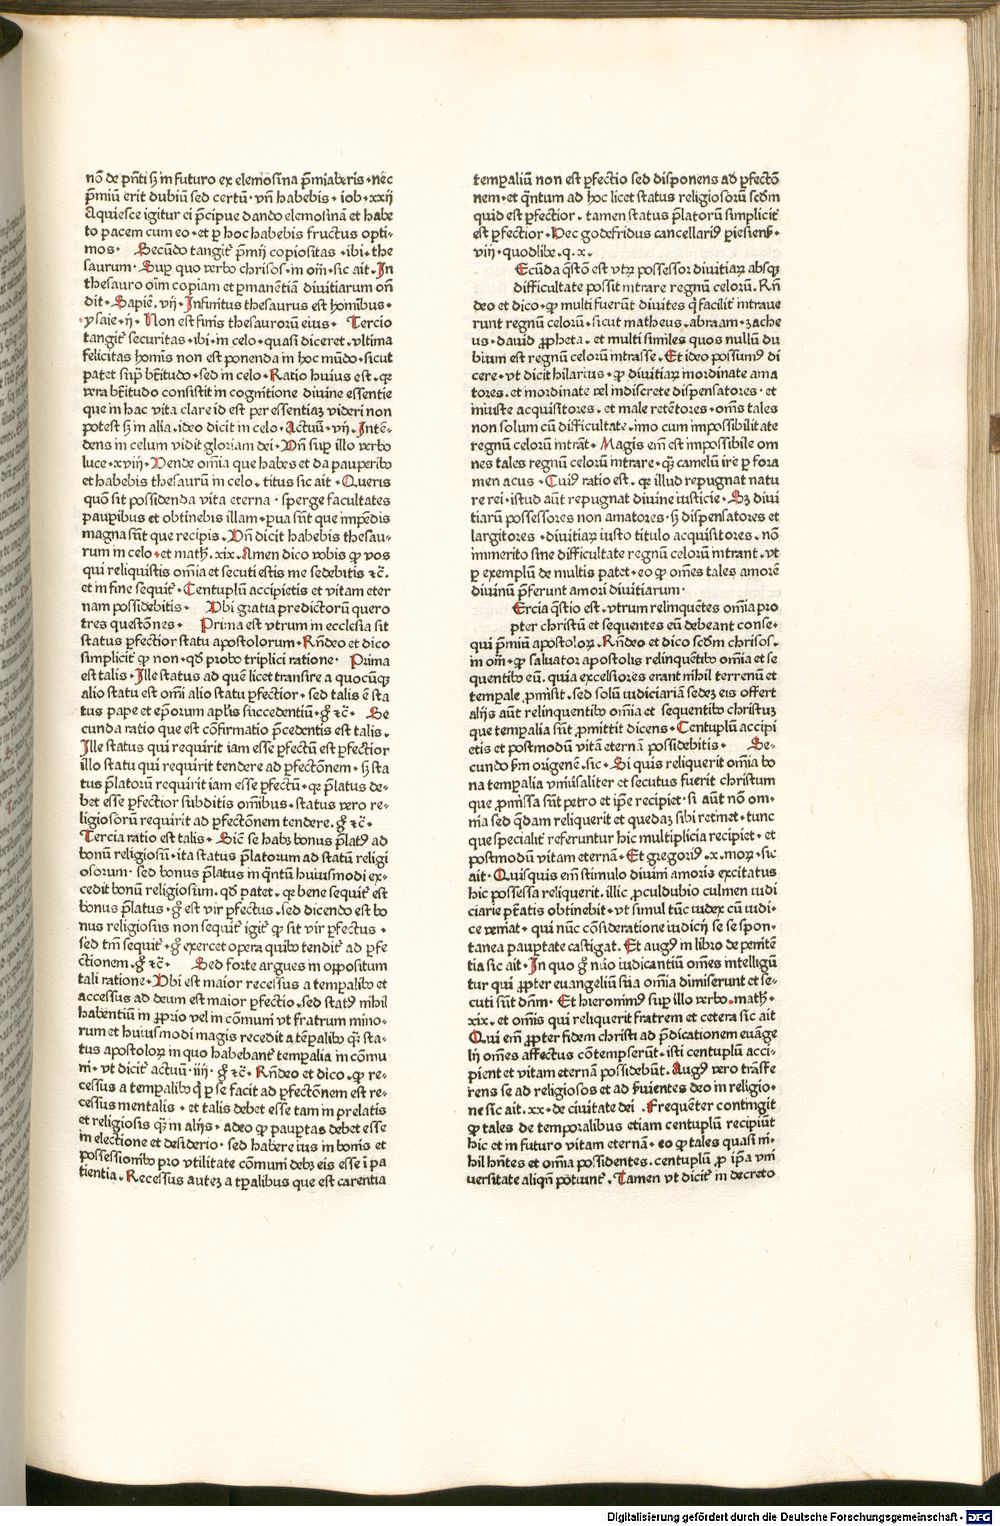 nō de p̄nti sꝫ in futuro ex elemosina p̄miaberis · nec
p̄miū erit dubiū sed certū · vn̄ habebis · iob · xxij
Aquiesce igitur ei p̄ncipe dando elemosinā et habe
to pacem cum eo · et ꝑ hoc habebis fructus opti-
mos · Secūdo tangit̄ p̄mij copiositas · ibi · the
saurum · Suꝑ quo verbo chrisos · in om̄ · sic ait · In
thesauro oīm copiam et ꝑmanentiā diuitiarum on̄
dit · Sapiē · vij · Infinitus thesaurus est hominibus ·
ysaie · ij · Non est finis thesaurorū eius · Tercio
tangit̄ securitas · ibi · in celo · quasi diceret · vltima
felicitas hominis non est ponenda in hoc mūdo · sicut
patet suꝑ bt̄itudo · sed in celo · Ratio huius est · qꝛ
vera bt̄itudo consistit in cognitione diuine essentie
que in hac vita clare id est per essentiaꝫ videri non
potest sꝫ in alia · ideo dicit in celo · Actuū · vij · Intē-
dens in celum vidit gloriam dei · Vn̄ suꝑ illo verbo
luce · xviij · Vende omīa que habes et da pauperibꝰ
et habebis thesaurū in celo · titus sic ait · Queris
quō sit possidenda vita eterna · sperge facultates
pauꝑibus et obtinebis illam · ꝑua sūt que impēdis
magna sūt que recipis · Vn̄ dicit habebis thesau-
rum in celo · et math̄ · xix · Amen dico vobis ꝙ vos
qui reliquistis omīa et secuti estis me sedebitis ⁊c̄ .
et in fine sequit̄ · Centuplū accipietis et vitam eter
nam possidebitis · Vbi gratia predictorū quero
tres questōnes · Prima est vtrum in ecclesia sit
status ꝑfectior statu apostolorum · Rn̄deo et dico
simplicit̄ ꝙ non · qd̄ probo triplici ratione · Prima
est talis · Ille status ad quē licet transire a quocūqꝫ
alio statu est omī alio statu ꝑfectior · sed talis ē sta
tus pape et ep̄orum apl̄is succedentiū · gͦ ⁊c̄ · Se
cunda ratio que est cōfirmatio p̄cedentis est talis .
Ille status qui requirit iam esse ꝑfectū est ꝑfectior
illo statu qui requirit tendere ad ꝑfectōnem · sꝫ sta
tus p̄latorū requirit iam esse ꝑfectū · qꝛ p̄latus de-
bet esse ꝑfectior subditis omībus · status vero re-
ligiosorū requirit ad ꝑfectōnem tendere . gͦ ⁊c̄ ·
Tercia ratio est talis · Sic̄ se habꝫ bonus p̄latꝰ ad
bonū religiosū · ita status p̄latorum ad statū religi
osorum · sed bonus p̄latus in qn̄tū huiusmodi ex-
cedit bonū religiosum . qd̄ patet · qꝛ bene sequit̄ est
bonus p̄latus · gͦ est vir ꝑfectus · sed dicendo est bo
nus religiosus non sequit̄ igit̄ ꝙ sit vir ꝑfectus ·
sed tm̄ sequit̄ · gͦ exercet opera quibꝰ tendit̄ ad ꝑfe
ctionem . gͦ ⁊c̄ · Sed forte argues in oppositum
tali ratione · Vbi est maior recessus a temꝑalibꝰ et
accessus ad deum est maior ꝑfectio · sed statꝰ nihil
habentiū in ꝓprio vel in cōmuni vt fratrum mino-
rum et huiusmodi magis recedit a tēꝑalibꝰ qꝫ sta-
tus apostoloꝝ in quo habebant̄ temꝑalia in cōmu
ni · vt dicit̄ actuū · iiij · gͦ ⁊c̄ · Rn̄deo et dico · ꝙ re-
cessus a temꝑalibꝰ qͥ ꝑ se facit ad ꝑfectōnem est re-
cessus mentalis · et talis debet esse tam in prelatis
et religiosis qꝫ in alijs · adeo ꝙ pauꝑtas debet esse
in electione et desiderio · sed habere ius in bonis et
possessionibꝰ pro vtilitate cōmuni debꝫ eis esse ī pa
tientia . Recessus auteꝫ a tꝑalibus que est carentia
temꝑaliū non est ꝑfectio sed disponens ad ꝑfectō
nem · et qn̄tum ad hoc licet status religiosorū scd̄m
quid est ꝑfectior · tamen status p̄latorū simplicit̄
est ꝑfectior · Hec godefridus cancellariꝰ ꝑisiensꝭ ·
viij · quodlibe · q . x .
Ecūda qstō est vtꝝ possessor diuitiaꝝ absqꝫ
difficultate possit intrare regnū celorū . Rn̄
deo et dico · ꝙ multi fuerūt diuites qͥ facilit̄ intraue
runt regnū celorū · sicut matheus · abraam · zache
us · dauid ꝓpheta · et multi similes quos nullū du
bium est regnū celorū intrasse . Et ideo possumꝰ di
cere · vt dicit hilarius · ꝙ diuitiaꝝ inordinate ama
tores · et inordinate vel indiscrete dispensatores · et
iniuste acquisitores . et male retētores · om̄s tales
non solum cū difficultate · imo cum impossibilitate
regnū celorū intrāt · Magis em̄ est impossibile om
nes tales regnū celorū intrare · qꝫ camelū ire ꝑ fora
men acus · Cuiꝰ ratio est . qꝛ illud repugnat natu
re rei · istud aūt repugnat diuine iusticie · Sꝫ diui
tiarū possessores non amatores · sꝫ dispensatores et
largitores · diuitiaꝝ iusto titulo acquisitores · nō
immerito sine difficultate regnū celorū intrant . vt
ꝑ exemplū de multis patet · eo ꝙ om̄es tales amorē
diuinū p̄ferunt amori diuitiarum ·
Ercia q̄stio est · vtrum relinquētes omīa pro
pter christū et sequentes eū debeant conse-
qui p̄miū apostoloꝝ . Rn̄deo et dico scd̄m chrisos .
in om̄ · ꝙ saluator apostolis relinquētibꝰ omīa et se
quentibꝰ eū . quia excelsiores erant nihil terrenū et
temꝑale ꝓmisit · sed solū iudiciariā sedeꝫ eis offert
alijs aūt relinquentibꝰ omīa et sequentibꝰ christuꝫ
que temꝑalia sūt ꝓmittit dicens · Centuplū accipi
etis et postmodū vitā eternā possidebitis · Se-
cundo ẜm origenē · sic · Si quis reliquerit omīa bo
na temꝑalia vniuersaliter et secutus fuerit christum
que ꝓmissa sūt petro et ip̄e recipiet · si aūt nō om-
nia sed qͣdam reliquerit et quedaꝫ sibi retinet · tunc
que specialit̄ referuntur hic multiplicia recipiet · et
postmodū vitam eternā · Et gregoriꝰ · x · moꝝ · sic
ait · Quisquis em̄ stimulo diuini amoris excitatus
hic possessa reliquerit . illic ꝓculdubio culmen iudi
ciarie ptātis obtinebit · vt simul tūc iudex cū iudi-
ce veniat · qui nūc cōsideratione iudicij se se spon-
tanea pauꝑtate castigat . Et augꝰ in libro de penitē
tia sic ait · In quo gͦ nūo iudicantiū om̄es intelligū
tur qui ꝓpter euangeliū sua omīa dimiserunt et se-
cuti sūt dn̄m · Et hieronimꝰ suꝑ illo verbo · math̄ ·
xix · et omnis qui reliquerit fratrem et cetera sic ait
Qui em̄ ꝓpter fidem christi ad p̄dicationem euāge
lij om̄es affectus cōtempserūt · isti centuplū acci-
pient et vitam eternā possidebūt . Augꝰ vero trāsfe
rens se ad religiosos et ad ẜuientes deo in religio-
ne sic ait . xx · de ciuitate dei . Frequēter contingit
ꝙ tales de temporalibus etiam centuplū recipiūt
hic et in futuro vitam eternā · eo ꝙ tales quasi ni-
hil hn̄tes et omīa possidentes . centuplū ꝓ ip̄a vni
uersitate aliqn̄ potiunt̄ . Tamen vt dicit̄ in decreto
Digitalisierung gefördert durch die Deutsche Forschungsgemeinschaft - DFG